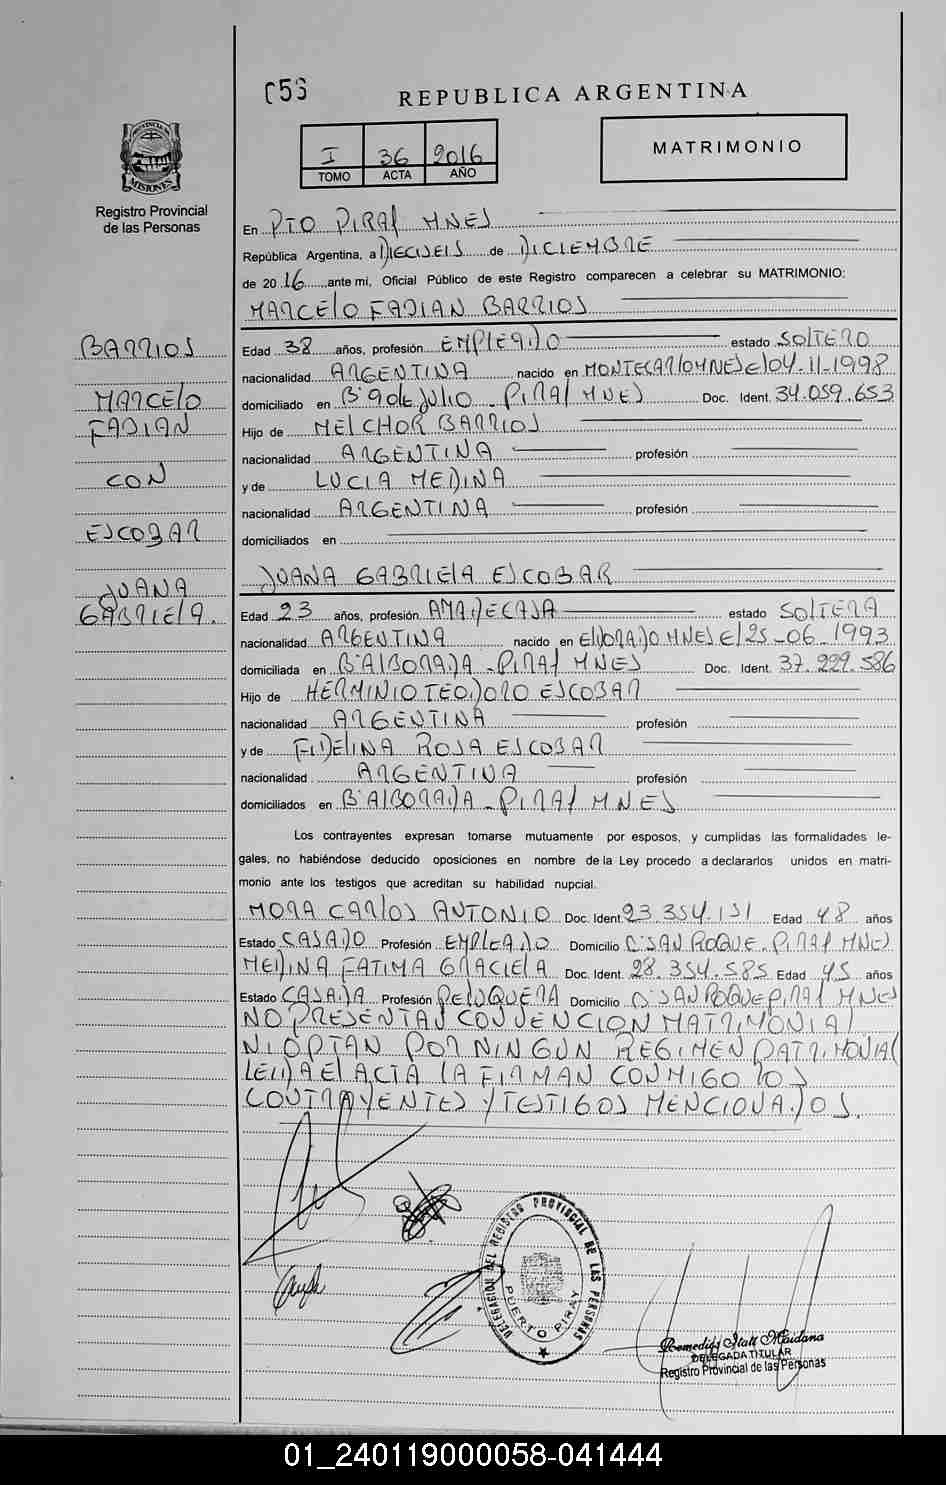 056
REPUBLICA ARGENTINA
I 36 2016
TOMO ACTA AÑO
MATRIMONIO
PROVINCIA DE
MISIONES
Registro Provincial
de las Personas
En PTO PIRAY MNES
República Argentina, a DIECISEIS de DICIEMBRE
de 20 16 ante mi, Oficial Público de este Registro comparecen a celebrar su MATRIMONIO:
MARCELO FABIAN BARRIOS
BARRIOS
MARCELO
FABIAN
CON
ESCOBAR
JUANA
GABRIELA.
Edad 38 años, profesión EMPLEADO estado SOLTERO
nacionalidad ARGENTINA nacido en MONTECARLO MNES El 04-11-1998
domiciliado en B° 9 DE JULIO - PIRAY MNES Doc. Ident. 34.059.653
Hijo de MELCHOR BARRIOS
nacionalidad ARGENTINA profesión
y de LUCIA MEDINA
nacionalidad ARGENTINA profesión
domiciliados en
JUANA GABRIELA ESCOBAR
Edad 23 años, profesión AMA DE CASA estado SOLTERA
nacionalidad ARGENTINA nacido en ELDORADO MNES El 25-06-1993
domiciliada en B° ALBORADA - PIRAY MNES Doc. Ident. 37.229.586
Hijo de HERMINIO TEODORO ESCOBAR
nacionalidad ARGENTINA profesión
y de FIDELINA ROSA ESCOBAR
nacionalidad ARGENTINA profesión
domiciliados en B° ALBORADA - PIRAY MNES
Los contrayentes expresan tomarse mutuamente por esposos, y cumplidas las formalidades le-
gales, no habiéndose deducido oposiciones en nombre de la Ley procedo a declararlos unidos en matri-
monio ante los testigos que acreditan su habilidad nupcial.
MORA CARLOS ANTONIO Doc. Ident. 23.354.151 Edad 48 años
Estado CASADO Profesión EMPLEADO Domicilio B° SAN ROQUE - PIRAY MNES
MEDINA FATIMA GRACIELA Doc. Ident. 28.354.585 Edad 45 años
Estado CASADA Profesión PELUQUERA Domicilio B° SAN ROQUE PIRAY MNES
NO PRESENTAN CONVENCION MATRIMONIAL
NI OPTAN POR NINGUN REGIMEN PATRIMONIAL
LEIDA El ACTA LA FIRMAN CONMIGO LOS
CONTRAYENTES Y TESTIGOS MENCIONADOS.
DELEGACION DEL REGISTRO PROVINCIAL DE LAS PERSONAS
PUERTO PIRAY
Remedios Itatí Maidana
DELEGADA TITULAR
Registro Provincial de las Personas
01_240119000058-041444